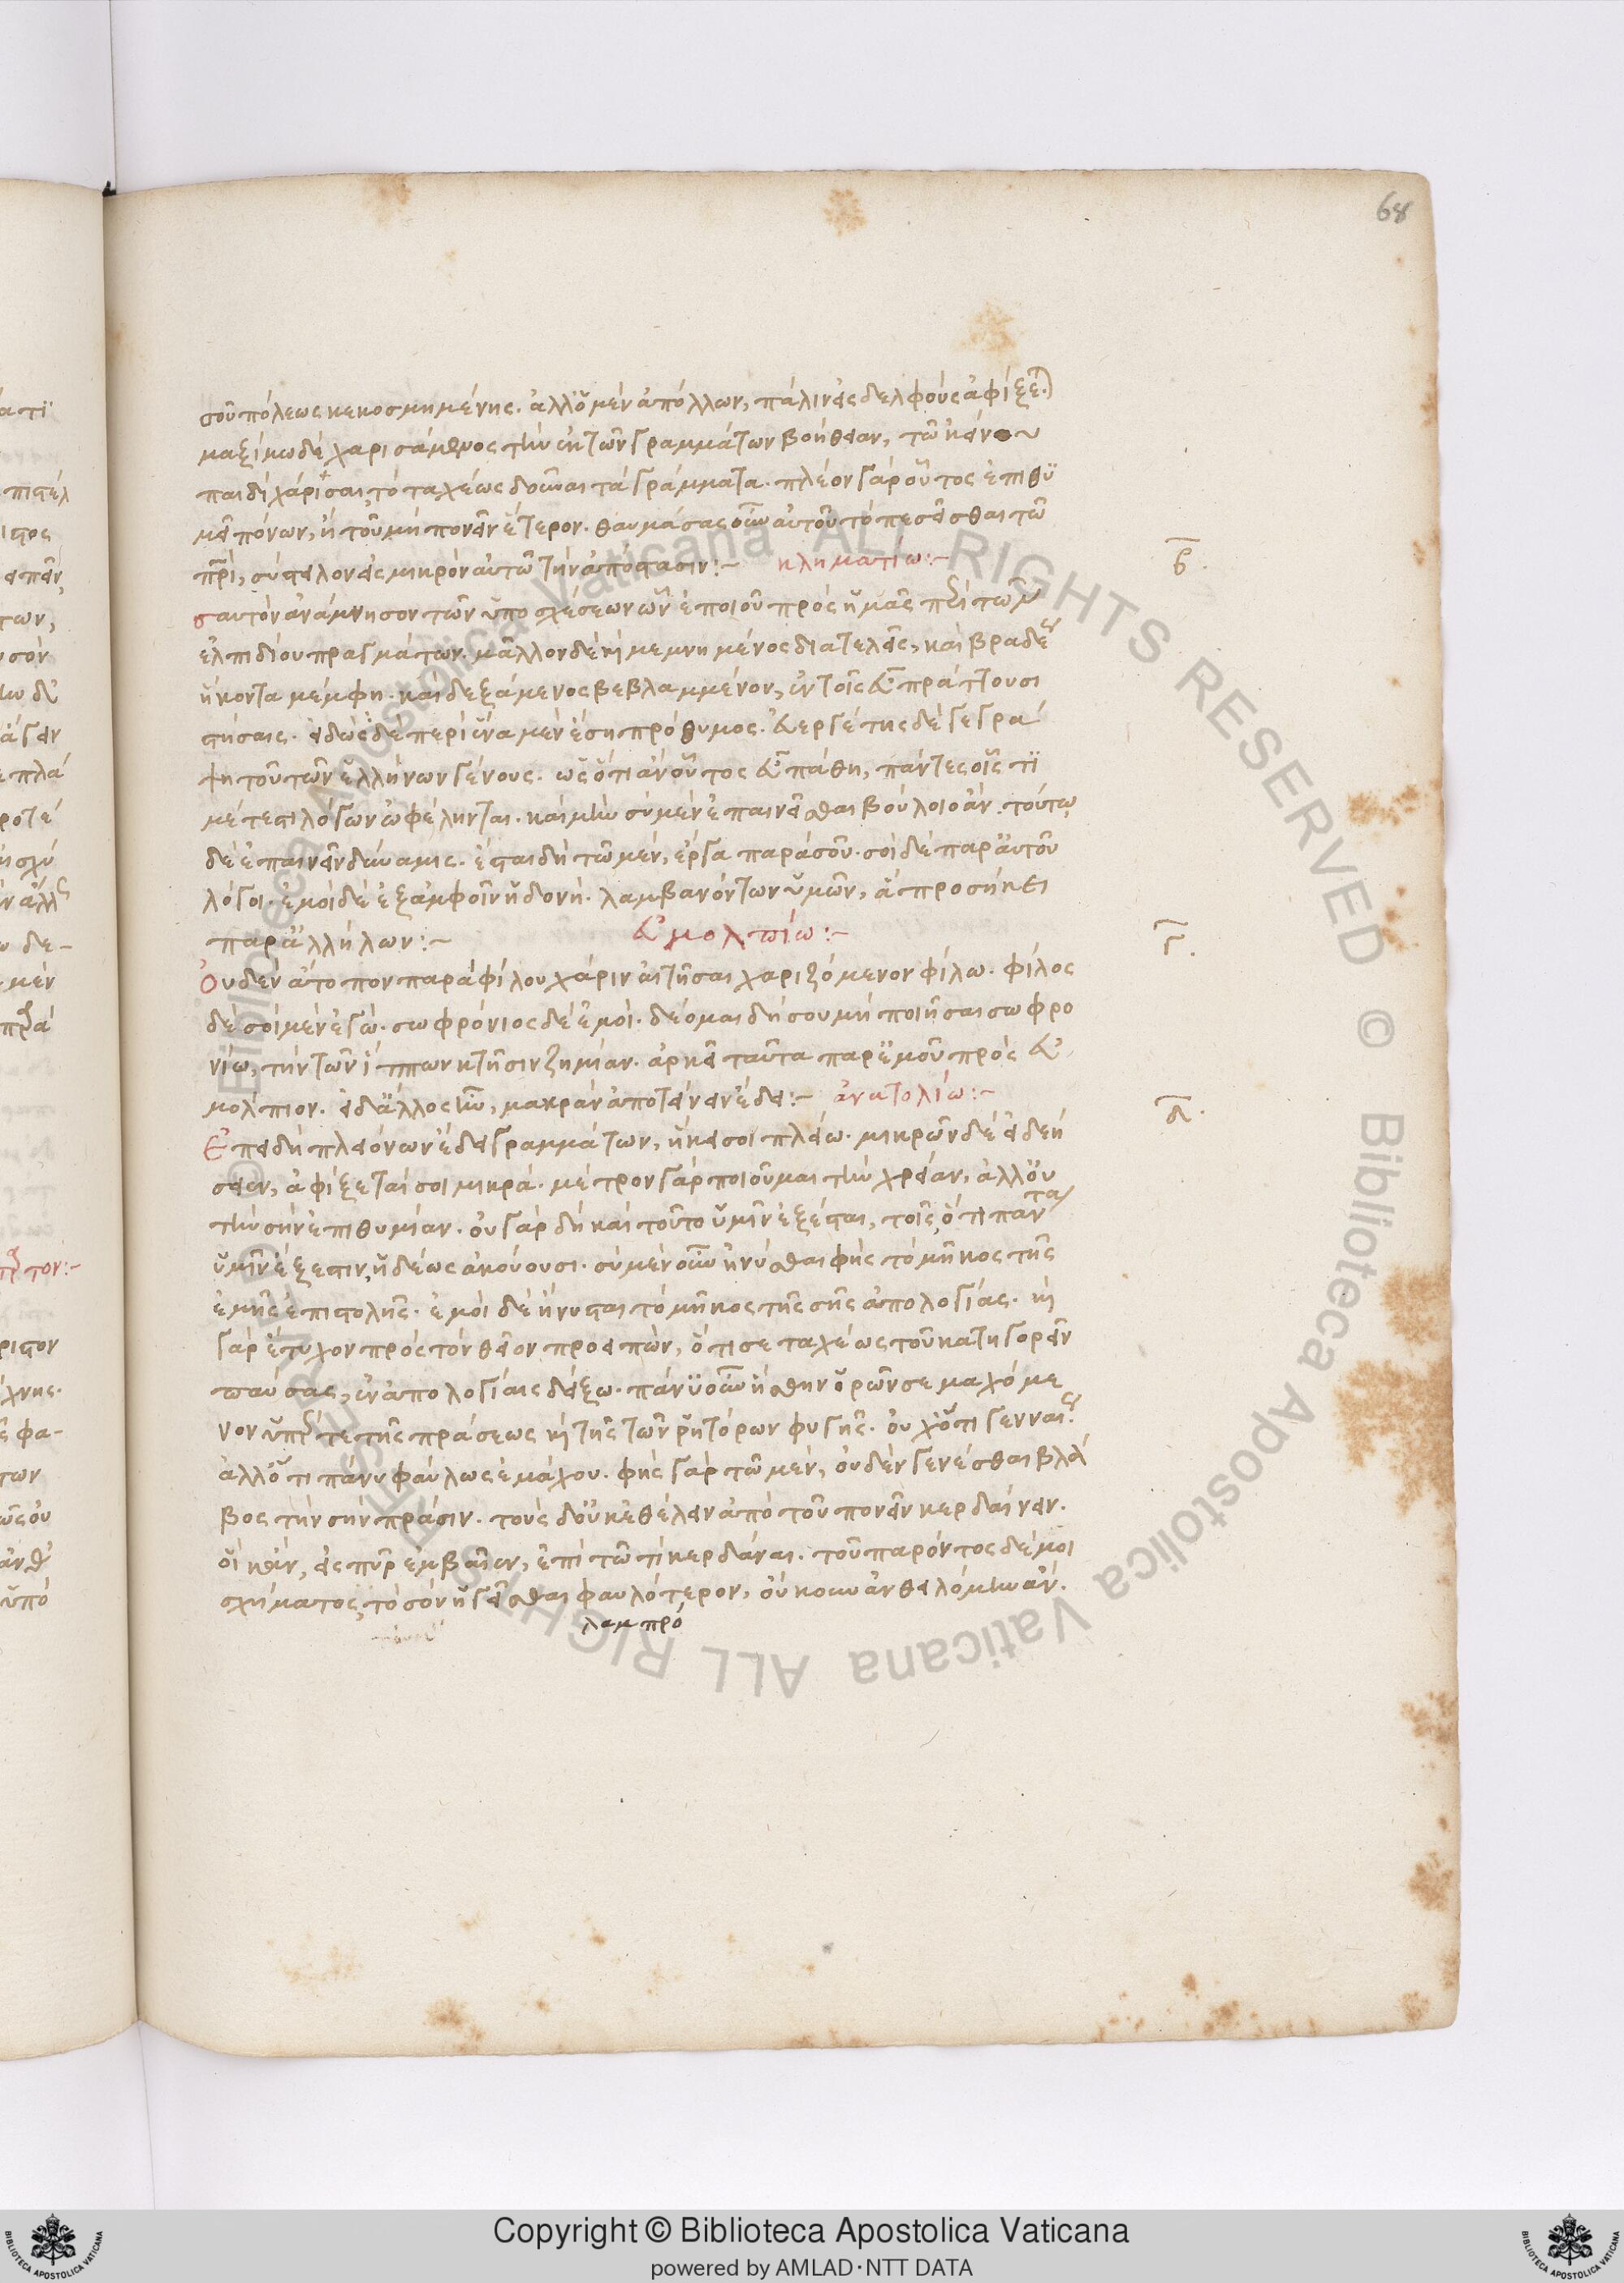 68
σοῦ πόλεως κεκοσμημένης. ἀλλ' ὁ μὲν ἀπόλλων, πάλιν εἰς δελφοὺς ἀφίξεται.
μαξίμω δὲ χαρισάμενος τὴν ἐκ τῶν γραμμάτων βοήθειαν, τῶ ἐκείνου
παιδὶ χάρισαι τὸ ταχέως δοῦναι τὰ γράμματα. πλέον γὰρ οὗτος ἐπιθυ
μεῖ πόνων, ἢ τοῦ μὴ πονεῖν ἕτερον. θαυμάσας οὖν αὐτοῦ τὸ πεσεῖσθαι τῶ
πατρὶ, σύστειλον εἰς μικρὸν αὐτῶ τὴν ἀπόστασιν:- κληματίω:- β.
σαυτὸν ἀνάμνησον τῶν ὑποσχέσεων ὧν ἐποιοῦ πρὸς ἡμᾶς περὶ τῶν
ἐλπιδίου πραγμάτων. μᾶλλον δὲ καὶ μεμνημένος διατελεῖς, καὶ βραδέως
ἥκοντα μέμφη. καὶ δεξάμενος βεβλαμμένον, ἐν τοῖς εὖ πράττουσι
στήσαις. εἰδὼς δὲ περὶ ἕνα μὲν ἔση πρόθυμος. εὐεργέτης δὲ γεγρά
ψη τοῦ τῶν ἑλλήνων γένους. ὡς ὅτι ἂν οὗτος εὖ πάθη, πάντες οἷς τι
μέτεστι λόγων ὠφέληνται. καὶ μὴν σὺ μὲν ἐπαινεῖσθαι βούλοιο ἄν. τούτω
δὲ ἐπαινεῖν δύναμις. ἔσται δὴ τῶ μὲν, ἔργα παρὰ σοῦ. σοὶ δὲ παρ' αὐτοῦ
λόγοι. ἐμοὶ δὲ ἐξ ἀμφοῖν ἡδονὴ. λαμβανόντων ὑμῶν, ἃ προσήκει
παρ' ἀλλήλων:- εὐμολπίω:- γ.
Οὐδὲν ἄτοπον παρὰ φίλου χάριν αἰτῆσαι χαριζόμενον φίλω. φίλος
δὲ σοὶ μὲν ἐγώ. σωφρόνιος δὲ ἐμοί. δέομαι δή σου μὴ ποιῆσαι σωφρο
νίω, τὴν τῶν ἵππων κτῆσιν ζημίαν. ἀρκεῖ ταῦτα παρ' ἐμοῦ πρὸς εὐ
μόλπιον. εἰ δ' ἄλλος ἦν, μακρὰν ἀποτείνειν ἔδει:- ἀνατολίω:- δ.
Ἐπειδὴ πλειόνων ἔδει γραμμάτων, ἧκέ σοι πλείω. μικρῶν δὲ εἰ δεή
σειεν, ἀφίξεταί σοι μικρά. μέτρον γὰρ ποιοῦμαι τὴν χρείαν, ἀλλ' οὐ
τὴν σὴν ἐπιθυμίαν. οὐ γὰρ δὴ καὶ τοῦτο ὑμῖν ἐξέσται, τοῖς, ὅτι πάντα
ὑμῖν ἔξεστιν, ἡδέως ἀκούουσι. σὺ μὲν οὖν ἠνύσθαι φὴς τὸ μῆκος τῆς
ἐμῆς ἐπιστολῆς. ἐμοὶ δὲ ἤνυσται τὸ μῆκος τῆς σῆς ἀπολογίας. καὶ
γὰρ ἔτυχον πρὸς τὸν θεῖον προειπὼν, ὅτι σε ταχέως τοῦ κατηγορεῖν
παύσας, ἐν ἀπολογίαις δείξω. πάνυ οὖν ἥσθην ὁρῶν σε μαχόμε
νον ὑπέρ τε τῆς πράσεως καὶ τῆς τῶν ῥητόρων φυγῆς. οὐχ ὅτι γενναίως.
ἀλλ' ὅτι πάνυ φαύλως ἐμάχου. φὴς γὰρ τῶ μὲν, οὐδὲν γενέσθαι βλά
βος τὴν σὴν πρᾶσιν. τοὺς δ' οὐκ ἐθέλειν ἀπὸ τοῦ πονεῖν κερδαίνειν.
οἳ κἂν, εἰς πῦρ ἐμβαῖεν, ἐπὶ τῶ τι κερδᾶναι. τοῦ παρόντος δέ μοι
σχήματος, τὸ σὸν ἡγεῖσθαι φαυλότερον, οὔκουν ἂν θελόμην ἄν.
λαμπρό